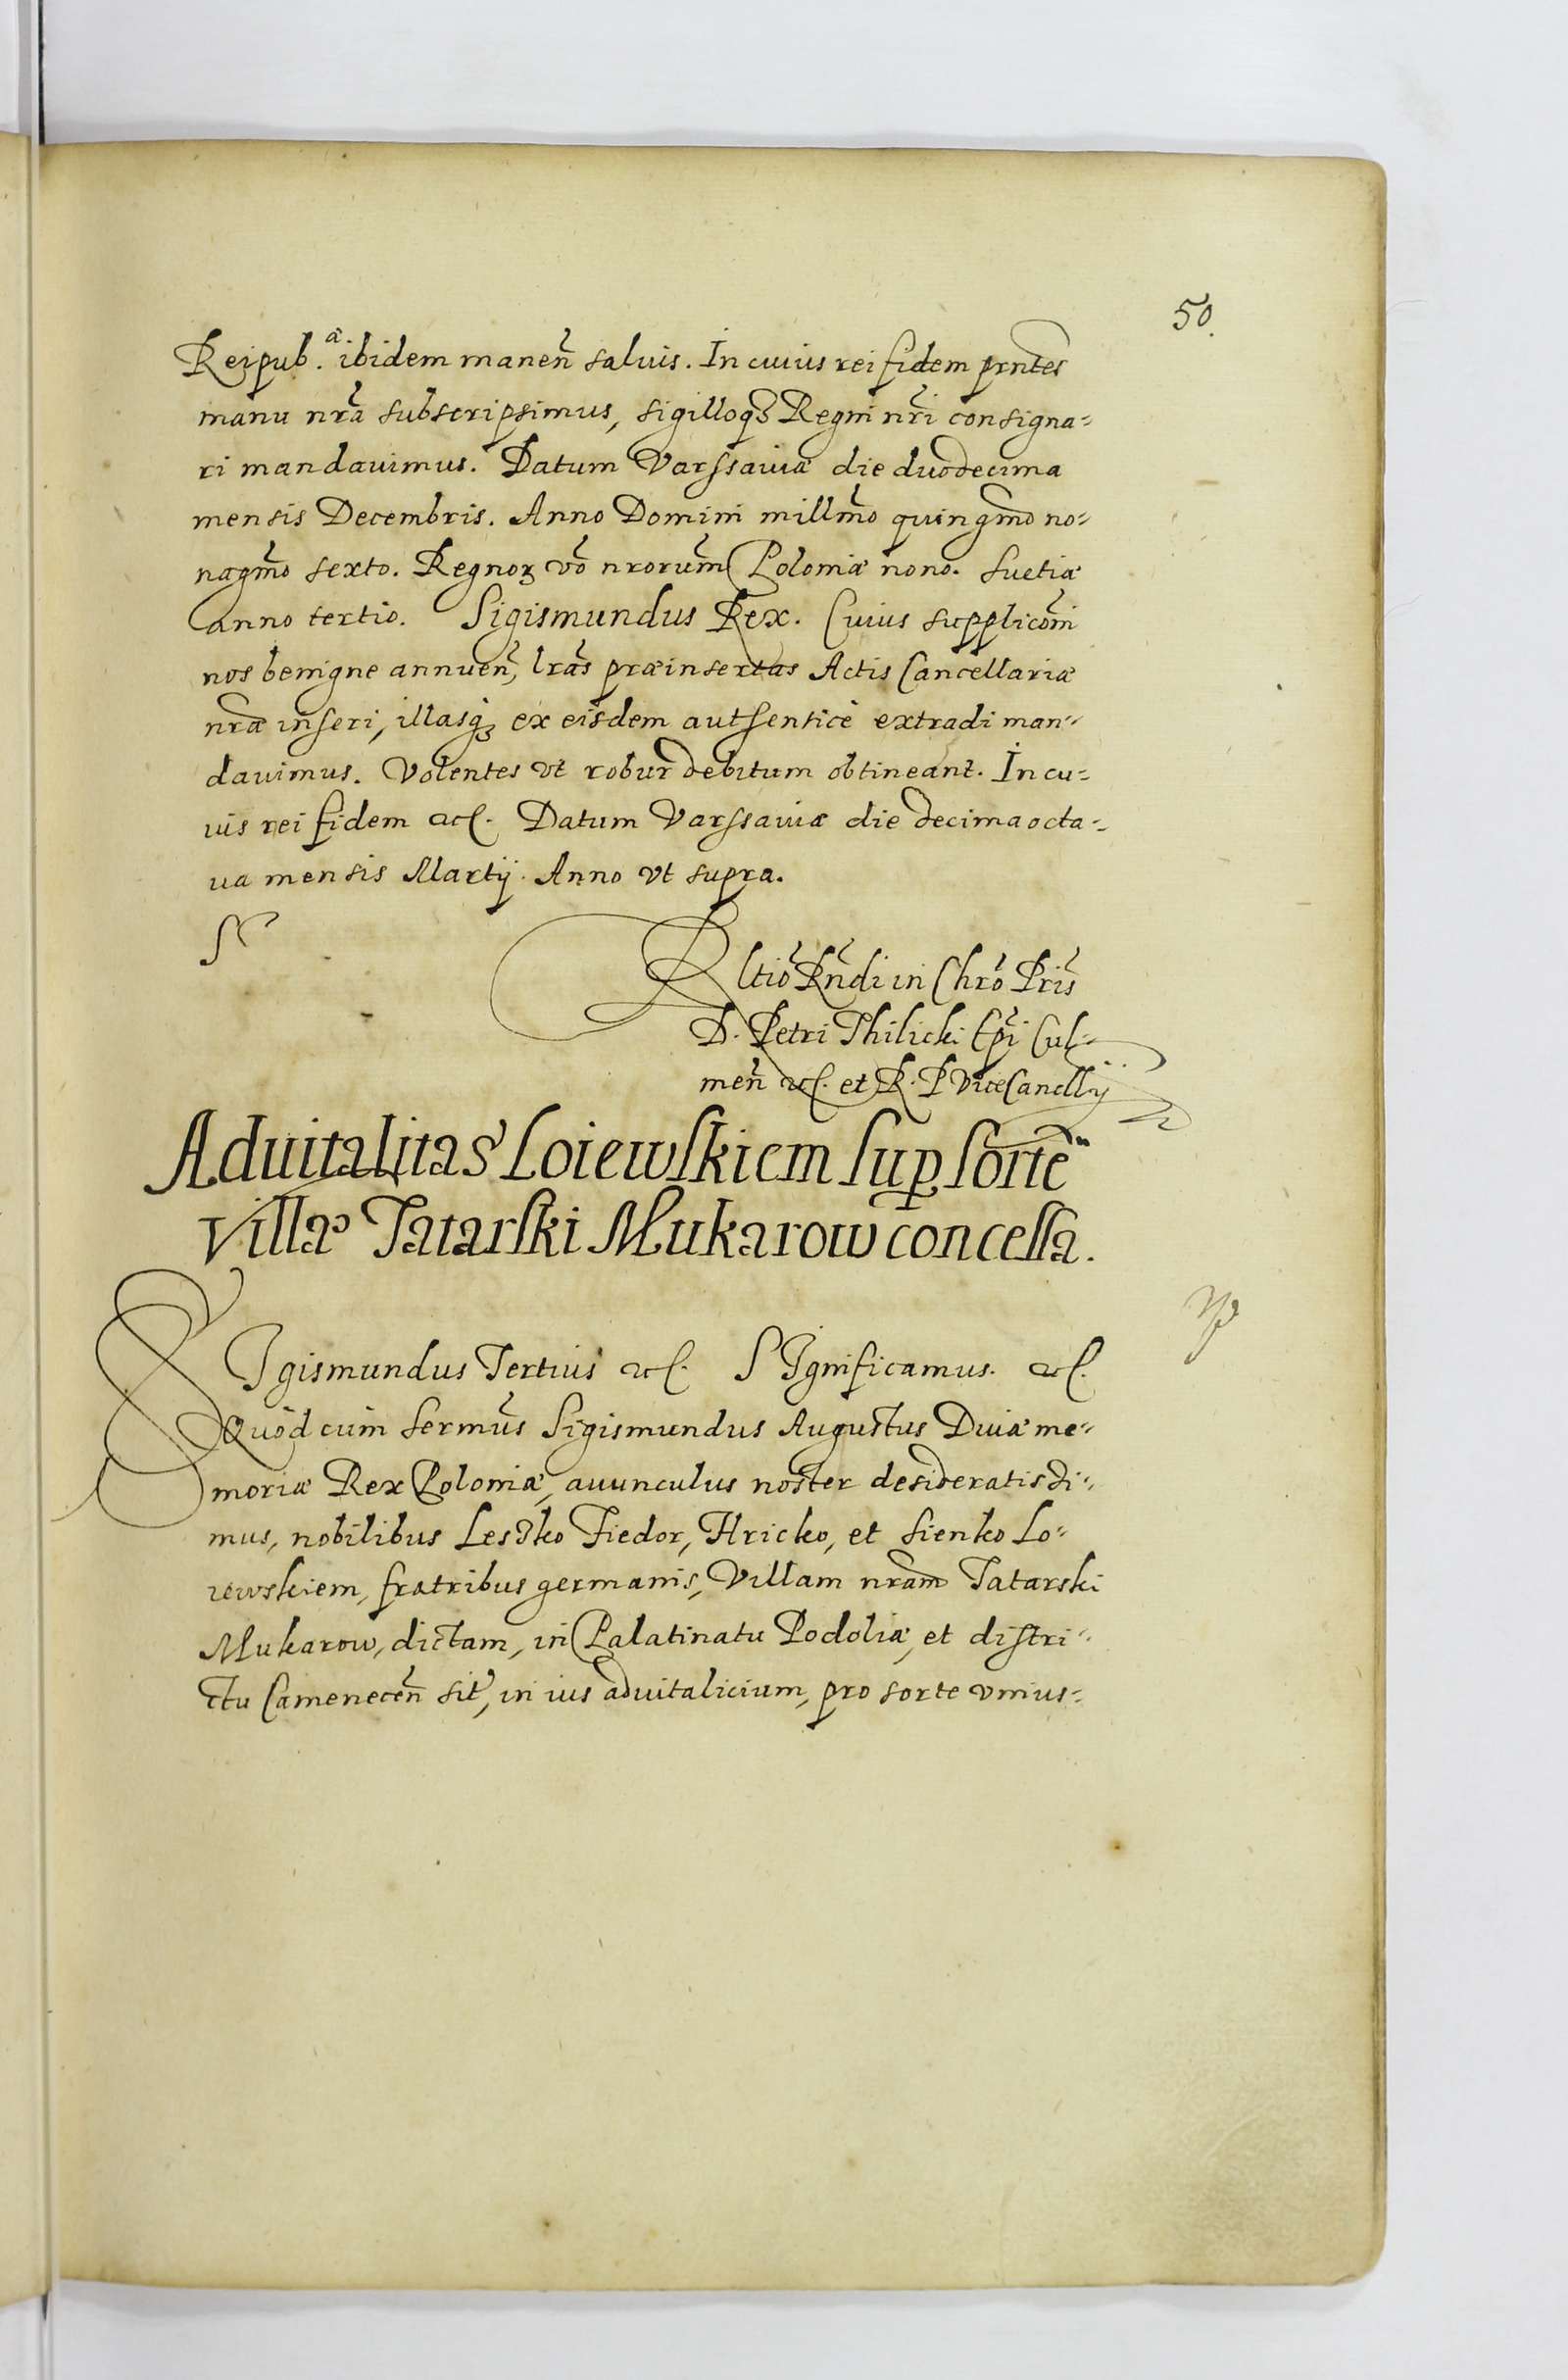 50.
Reipub.ᵃ̂ ibidem maneñ salvis. In cuius rei fidem prntes
manu nrã subscripsimus, sigilloqꝫ Regni nrĩ consigna-
ri mandavimus. Datum Varssaviæ die duodecima
mensis Decembris. Anno Domini millm̃o quingm̃o no-
nagm̃o sexto. Regnoꝝ võ nrorum̃ Poloniæ nono. Suetiæ
anno tertio. Sigismundus Rex. Cuius supplicõni
nos benigne annueñ, lrãs præinsertas Actis Cancellariæ
nræ inseri, illasqꝫ ex eisdem authenticè extradi man-
davimus. Volentes vt robur debitum obtineant. In cu-
ius rei fidem etc. Datum Varssaviæ die decima octa-
ua mensis Martij. Anno vt supra.
S
Rltiõ Rñdi in Chrõ Pris̃
D. Petri Thilicki Epĩ Cul-
meñ etc. et R. P ViceCancllrij
Aduitalitas Loiewskiem sup̱ sorte
Villæ Tatarski Mukarow concessa.
SIgismundus Tertius etc. SIgnificamus. etc.
Quòd cùm Sermũs Sigismundus Augustus Diuæ me-
moriæ Rex Poloniæ, auunculus noster desideratissi-
mus, nobilibus Lesko Fiedor, Hricko, et Sienko Lo-
iewskiem, fratribus germanis, Villam nram Tatarski
Mukarow, dictam, in Palatinatu Podoliæ, et distri-
ctu Cameneceñ sit̃, in ius aduitalicium, pro sorte vnius-